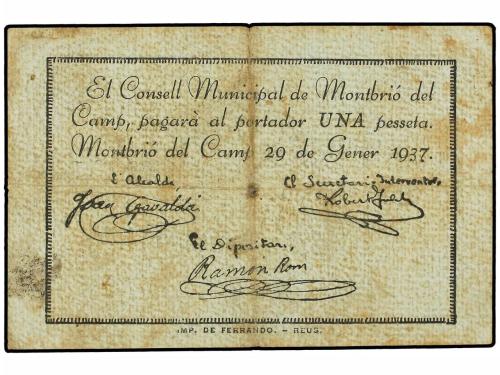 El Consell Municipal de Montbrió del
Camp, pagarà al portador UNA pesseta.
Montbrió del Camp 29 de Gener 1937.
L'Alcalde,
El Secretari Interventor,
Joan Gavaldà
Robert
El Dipositari,
Ramón Rom
IMP. DE FERRANDO. - REUS.